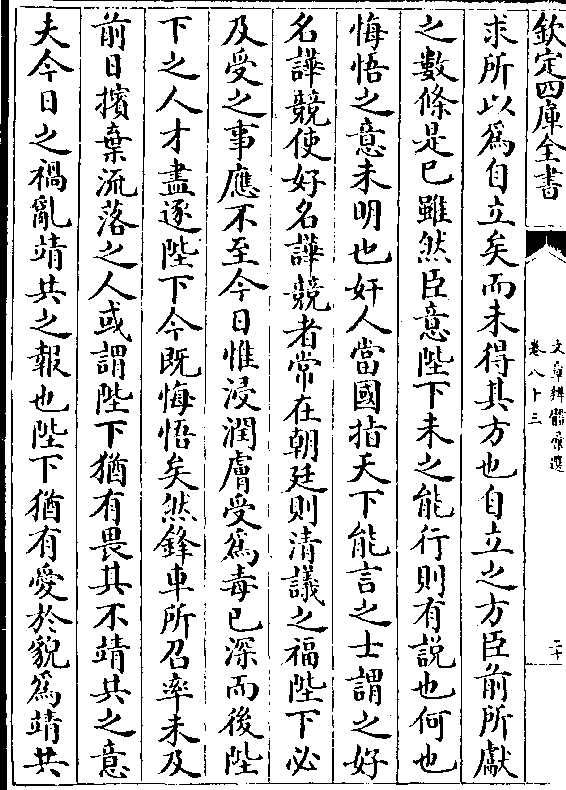 欽定四庫全書
文章辨體彙選
卷八十三
二十
求所以為自立矣而未得其方也自立之方臣前所獻
之數條是已雖然臣意陛下未之能行則有説也何也
悔悟之意未明也奸人當國指天下能言之士謂之好
名譁競使好名譁競者常在朝廷則清議之福陛下必
及受之事應不至今日惟浸潤膚受為毒已深而後陛
下之人才盡逐陛下今既悔悟矣然鋒車所召率未及
前日擯棄流落之人或謂陛下猶有畏其不靖共之意
夫今日之禍亂靖共之報也陛下猶有愛於貌為靖共